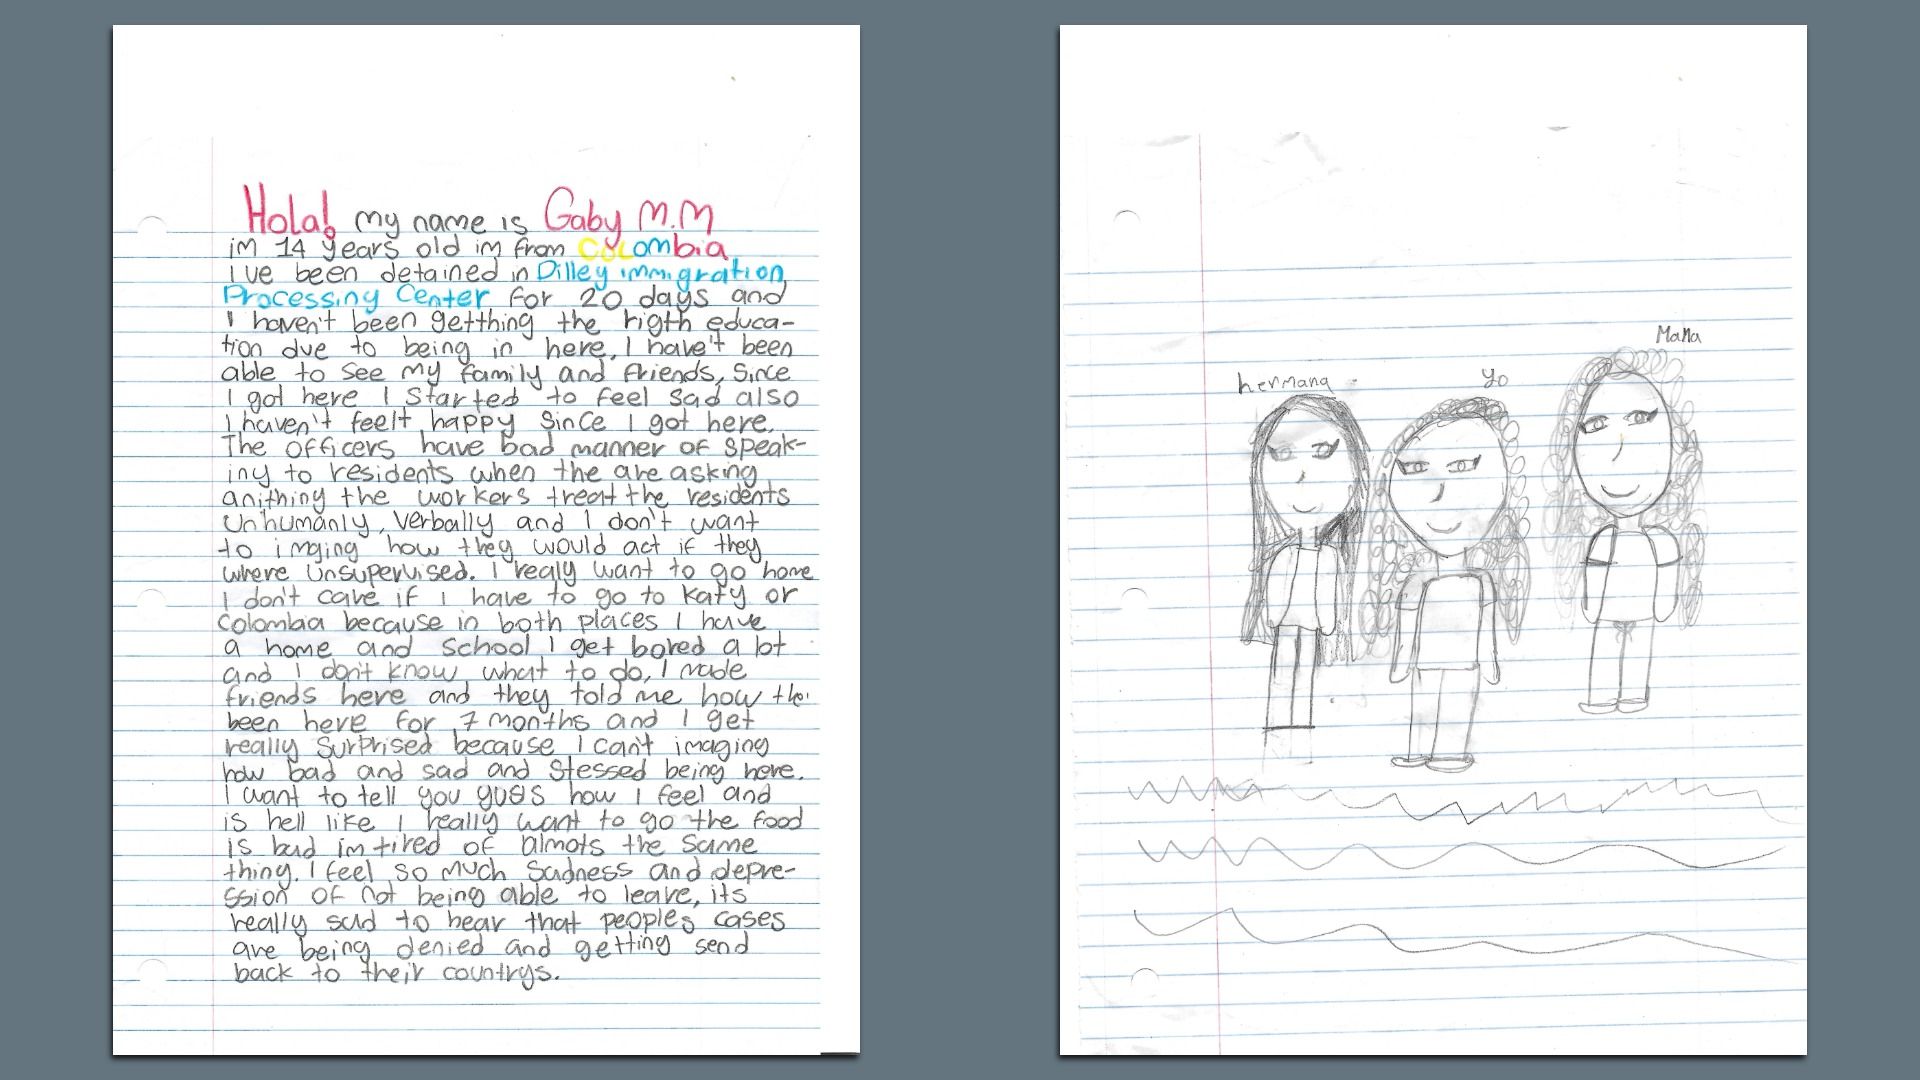 Hola! my name is Gaby M.M
im 14 years old im from Colombia
I've been detained in Dilley immigration
Processing Center for 20 days and
I haven't been getthing the rigth educa-
tion due to being in here, I have't been
able to see my family and friends, Since
I got here I Started to feel sad also
I haven't feelt happy Since I got here.
The officers have bad manner of speak-
iny to residents when the are asking
anithing the workers treat the residents
unhumanly, verbally and I don't want
to imging how they would act if they
where unsupervised. I realy want to go home
I don't care if I have to go to Katy or
Colombia because in both places I have
a home and School I get bored a lot
and I don't know what to do, I made
friends here and they told me how the
been here for 7 months and I get
really Surprised because I can't imaging
how bad and sad and Stessed being here.
I want to tell you how I feel and
is hell like I really want to go the food
is bad im tired of almots the same
thing. I feel so much Sadness and depre-
ssion of not being able to leave, its
really sad to hear that peoples cases
are being denied and getting send
back to their countrys.
hermana
yo
Mama